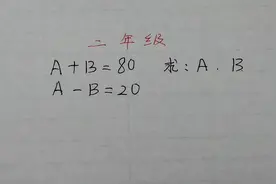 二年级
A+B=80 求:A.B
A-B=20